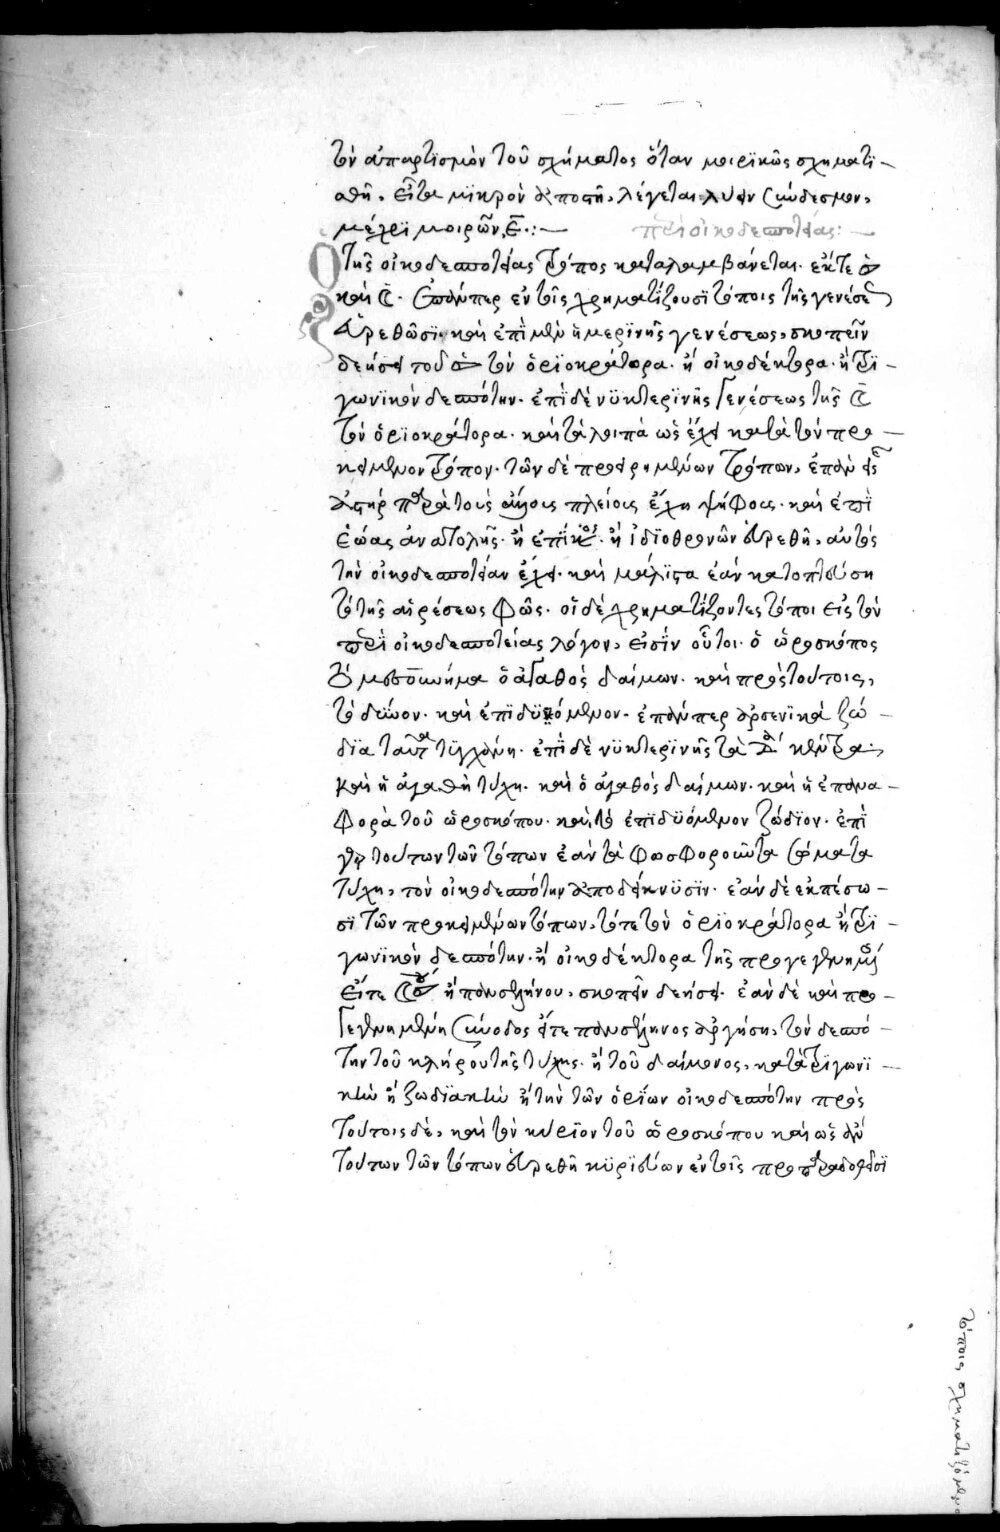 τὸν ἀπαρτϊσμὸν τοῦ σχήματος ὅταν μοιρϊκῶς σχηματϊ-
σθῆ, εἶτα μϊκρὸν ἀποστῆ, λέγεται λύειν σύνδεσμον,
μέχρϊ μοιρῶν, ε̄.:—
περὶ οἰκοδεσποτείας:—
Ὁ τῆς οἰκοδεσποτείας τρόπος καταλαμβάνεται ἐκ τε ☉
καὶ ☾. ἐπὰν περ ἐν τοῖς χρηματίζουσϊ τόποις τῆς γενέσε
εὑρεθῶσϊ. καὶ ἐπὶ μὲν ἡμερϊνῆς γενέσεως, σκοπεῖν
δεήσει τοῦ ☉ τὸν ὁρϊοκράτορα. ἢ οἰκοδέκτορα. ἢ τρϊ-
γωνϊκὸν δεσπότην. ἐπὶ δὲ νϋκτερϊνῆς γενέσεως τῆς ☾
τὸν ὁρϊοκράτορα. καὶ τὰ λοιπὰ ὡς ἔχει κατὰ τὸν προ-
κείμενον τρόπον. τῶν δὲ προειρημένων τρόπων,
ἀστὴρ παρὰ τοὺς πλείοις ἔχη ψήφους. καὶ ἐπὶ
ἑώας ἀνατολῆς. ἢ ἢ ἰδϊοθρονῶν εὑρεθῆ, αὐτὸς
τὴν οἰκοδεσποτείαν ἔχει. καὶ μάλϊστα ἐὰν κατοπτεύση
τὸ τῆς αἱρέσεως φῶς. οἱ δὲ χρηματίζοντες τόποι εἰς τὸν
περὶ οἰκοδεσποτείας λόγον, εἰσὶν οὗτοι. ὁ ὡροσκόπος
τὸ μεσουράνημα ὁ ἀγαθὸς δαίμων. καὶ πρὸς τούτοις,
τὸ δῦνον. καὶ ἐπϊδϋόμενον. ἐπὰν περ ἀρσενϊκὰ ζώ-
δϊα ταῦτα τϋγχάνη. ἐπὶ δὲ νϋκτερϊνῆς τὰ κέντρα,
καὶ ἡ ἀγαθὴ τύχη. καὶ ὁ ἀγαθὸς δαίμων. καὶ ἡ ἐπανα-
φορὰ τοῦ ὡροσκόπου. καὶ τὸ ἐπϊδϋόμενον ζώδϊον. ἐπὶ
γὰρ τούτων τῶν τόπων ἐὰν τὰ φωσφοροῦντα σώματα
τύχη, τὸν οἰκοδεσπότην ἀποδείκνϋσϊν. ἐὰν δὲ ἐκπέσω-
σϊ τῶν προκειμένων τόπων, τότε τὸν ὁρϊοκράτορα ἢ τρϊ-
γωνϊκὸν δεσπότην. ἢ οἰκοδέκτορα τῆς προγεγενημένης
εἴτε ☌ ἢ πανσελήνου, σκοπεῖν δεήσει. ἐὰν δὲ καὶ προ-
γεγενημένη σύνοδος εἴτε πανσέληνος ἀργήση, τὸν δεσπό-
την τοῦ κλήρου τῆς τύχης. ἢ τοῦ δαίμονος, κατὰ τρϊγωνϊ-
κὴν ἢ ζωδϊακὴν ἢ τὴν τῶν ὁρίων οἰκοδεσπότην πρὸς
τούτοις δὲ, καὶ τὸν κύριον τοῦ ὡροσκόπου καὶ ὡς ἂν
τούτων τῶν τόπων εὑρεθῆ κϋρϊεύων ἐν τοῖς προπαραδοθεῖσϊ
τόποις σχηματϊζόμενο